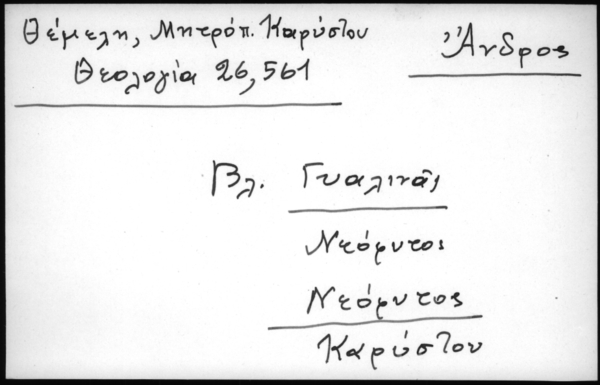 Θέμελη, Μητρόπ. Καρύστου
Θεολογία 26, 561
Ἄνδρος
Βλ. Γυαλινᾶς
Νεόφυτος
Νεόφυτος
Καρύστου